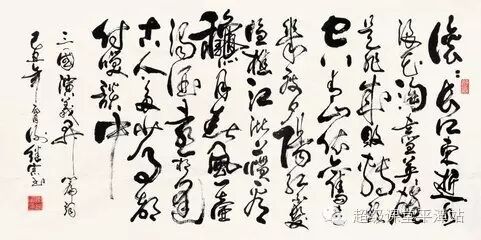 滚滚长江东逝水
浪花淘尽英雄
是非成败转头
空青山依旧在
几度夕阳红白发
渔樵江渚上惯看
秋月春风一壶
浊酒喜相逢
古今多少事都
付笑谈中
三國演義开篇词
己丑年
超级课堂平潭站